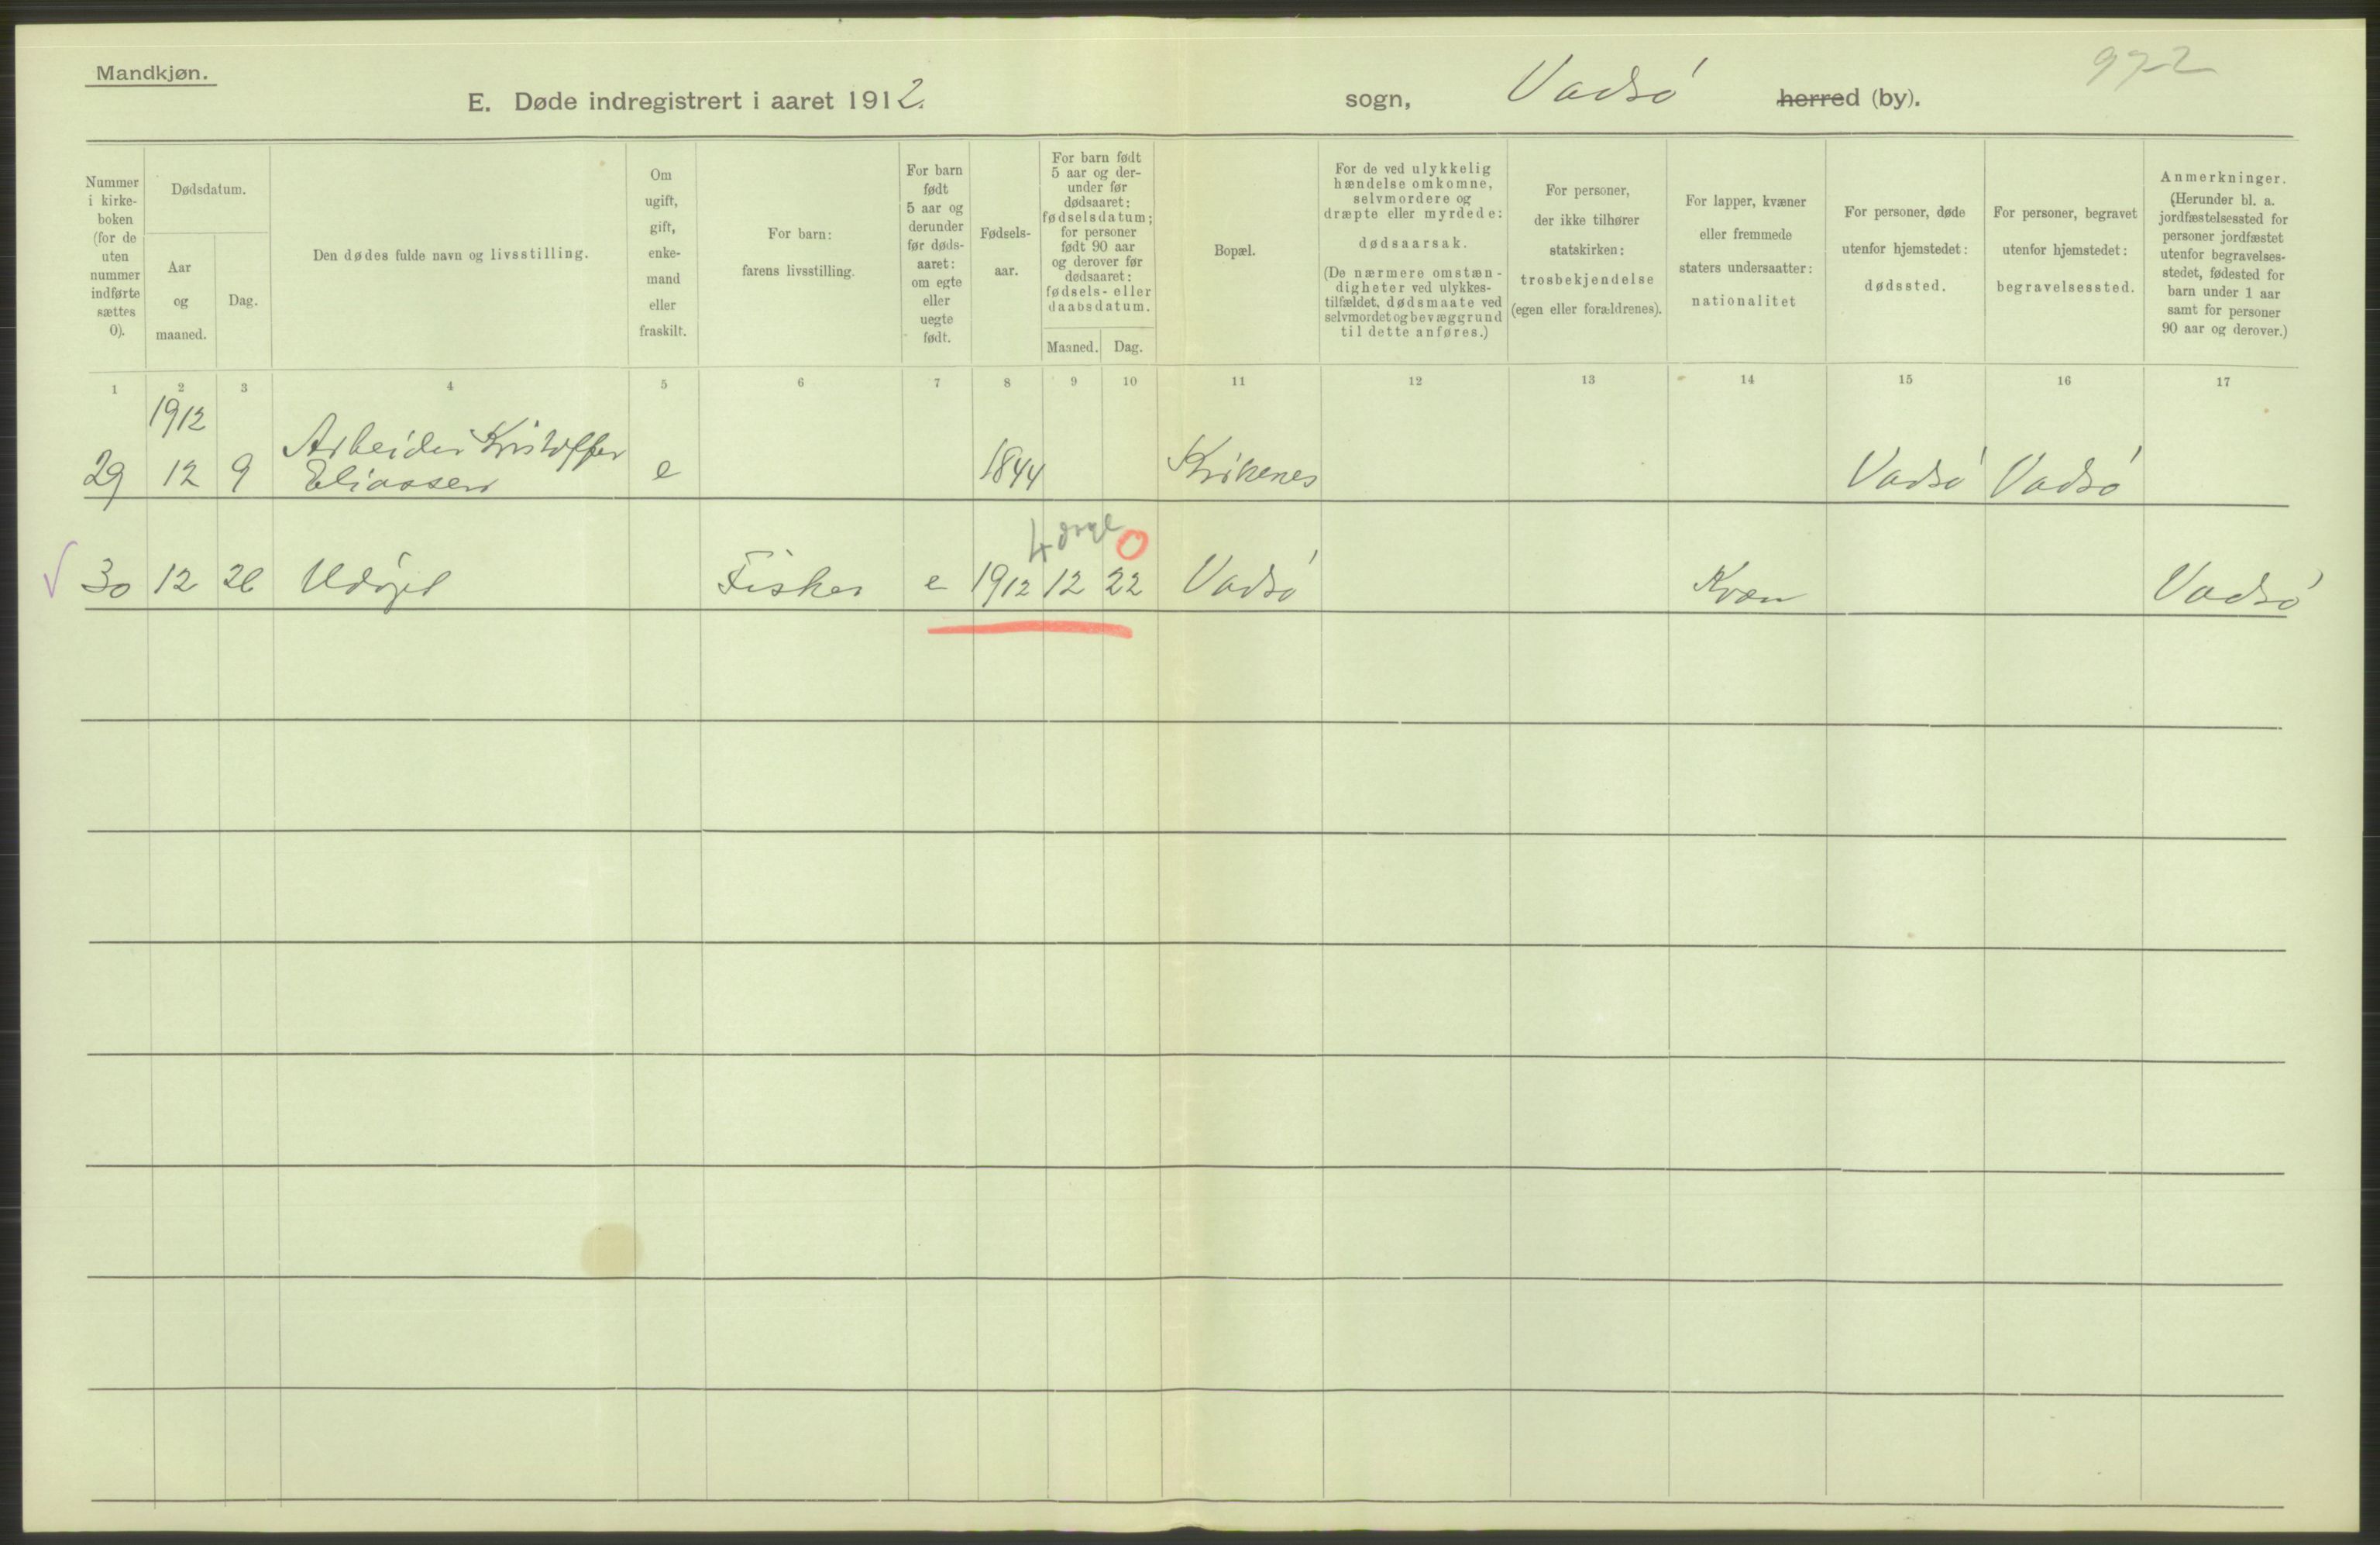 Mandkjøn.
972
E. Døde indregistrert i aaret 1912. sogn, Vadsø herred (by).
Nummer i kirke-boken (for de uten nummer indførte sættes 0).
Dødsdatum.
Aar og maaned.
Dag.
Den dødes fulde navn og livsstilling.
Om ugift, gift, enke-mand eller fraskilt.
For barn: farens livsstilling.
For barn født 5 aar og derunder før døds-aaret: om egte eller uegte født.
Fødsels-aar.
For barn født 5 aar og der-under før dødsaaret: fødselsdatum; for personer født 90 aar og derover før dødsaaret: fødsels- eller daabsdatum.
Maaned.
Dag.
Bopæl.
For de ved ulykkelig hændelse omkomne, selvmordere og dræpte eller myrdede: dødsaarsak.
(De nærmere omstæn-digheter ved ulykkes-tilfældet, dødsmaate ved selvmordet og bevæggrund til dette anføres.)
For personer, der ikke tilhører statskirken: trosbekjendelse (egen eller forældrenes).
For lapper, kvæner eller fremmede staters undersaatter: nationalitet
For personer, døde utenfor hjemstedet: dødssted.
For personer, begravet utenfor hjemstedet: begravelsessted.
Anmerkninger.
(Herunder bl. a. jordfæstelsessted for personer jordfæstet utenfor begravelses-stedet, fødested for barn under 1 aar samt for personer 90 aar og derover.)
1 2 3 4 5 6 7 8 9 10 11 12 13 14 15 16 17
1912
Arbeider Kristoffer
29 12 9 Eliassen e 1844 Kirkenes Vadsø Vadsø
4 0
30 12 26 Udøpt Fisker e 1912 12 22 Vadsø Kvæn Vadsø